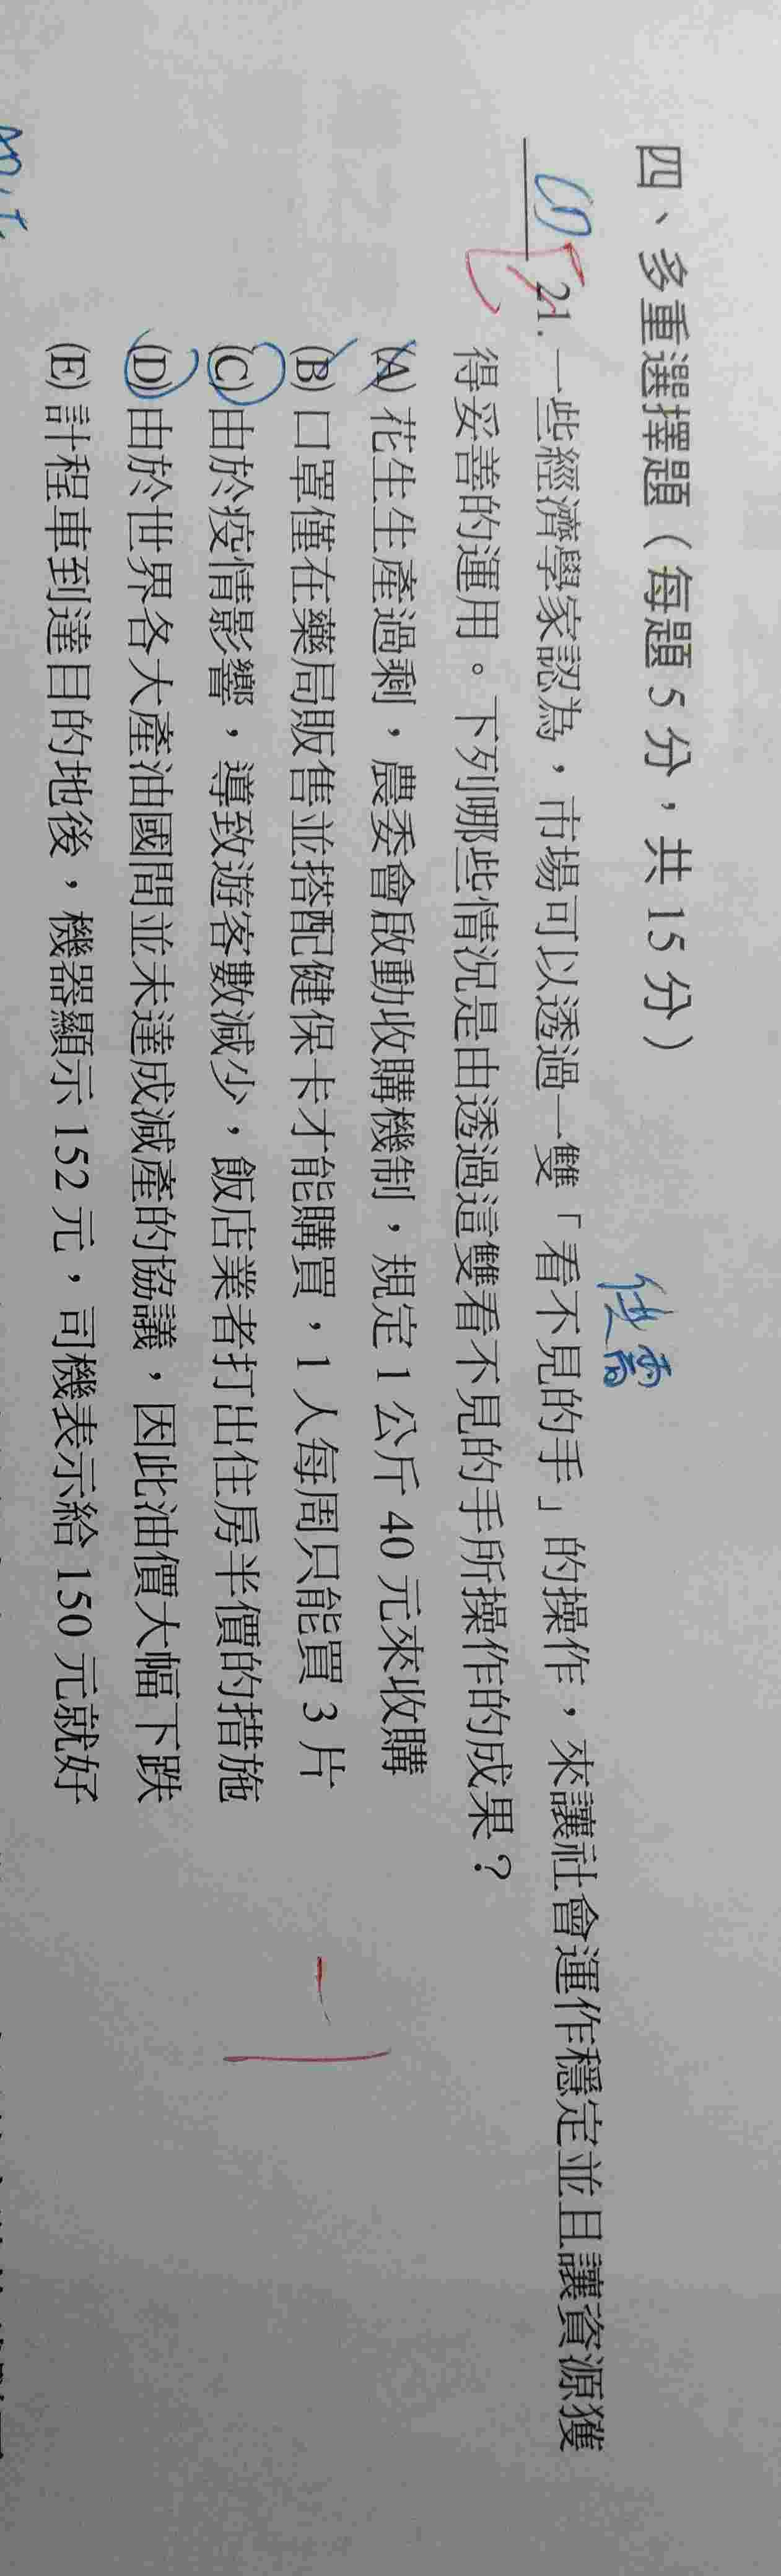 四、多重選擇題（每題 5 分，共 15 分）
21. 一些經濟學家認為，市場可以透過一雙「看不見的手」的操作，來讓社會運作穩定並且讓資源獲
得妥善的運用。下列哪些情況是由透過這雙看不見的手所操作的成果？
(A) 花生生產過剩，農委會啟動收購機制，規定 1 公斤 40 元來收購
(B) 口罩僅在藥局販售並搭配健保卡才能購買，1 人每周只能買 3 片
(C) 由於疫情影響，導致遊客數減少，飯店業者打出住房半價的措施
(D) 由於世界各大產油國間並未達成減產的協議，因此油價大幅下跌
(E) 計程車到達目的地後，機器顯示 152 元，司機表示給 150 元就好